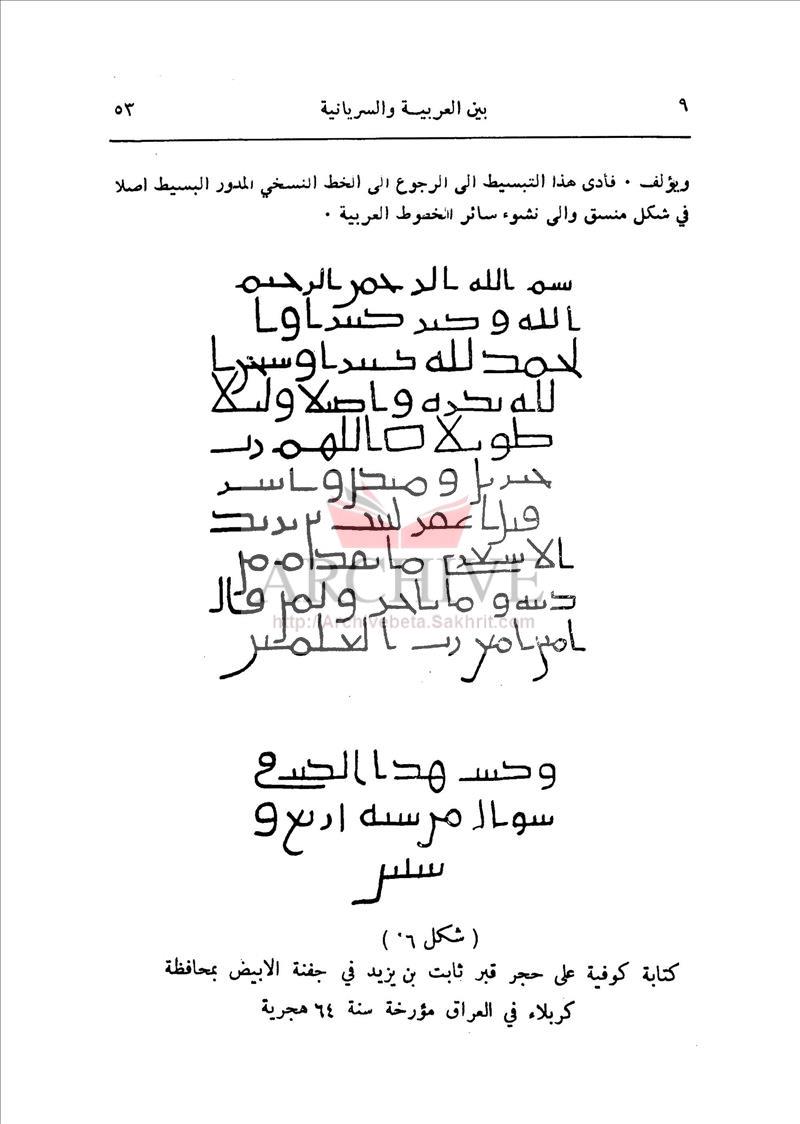 ٩ بين العربية والسريانية ٥٣
ويؤلف ٠ فأدى هذا التبسيط الى الرجوع الى الخط النسخي المدور البسيط اصلا
في شكل منسق والى نشوء سائر الخصوط العربية ٠
بسم الله الرحمن الرحيم
الله و كبر كبيرا وا
لحمد لله كثيرا وسبحن ا
لله بكره واصيلا وليلا
طويلا اللهم رب
جبريل وميكل واسر
فيل اغفر لثبت بن يزيد
الاسعدي ما تقدم من
ذنبه وما تاخر ولمن قال
امين امين رب العلمين
وكتبت هذا الكتب في
شوال من سنه اربع و
ستين
ARCHIVE
http://Archivebeta.Sakhrit.com
( شكل ٦٠ )
كتابة كوفية على حجر قبر ثابت بن يزيد في جفنة الابيض بمحافظة
كربلاء في العراق مؤرخة سنة ٦٤ هجرية